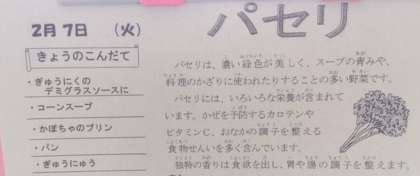 2月7日 （火）
きょうのこんだて
・ぎゅうにくの
デミグラスソースに
・コーンスープ
・かぼちゃのプリン
・パン
・ぎゅうにゅう
パセリ
パセリは、濃い緑色が美しく、スープの青みや、
料理のかざりに使われたりすることの多い野菜です。
パセリには、いろいろな栄養が含まれて
います。かぜを予防するカロテンや
ビタミンC、おなかの調子を整える
食物せんいを多く含んでいます。
独特の香りは食欲を出し、胃や腸の調子を整えます。